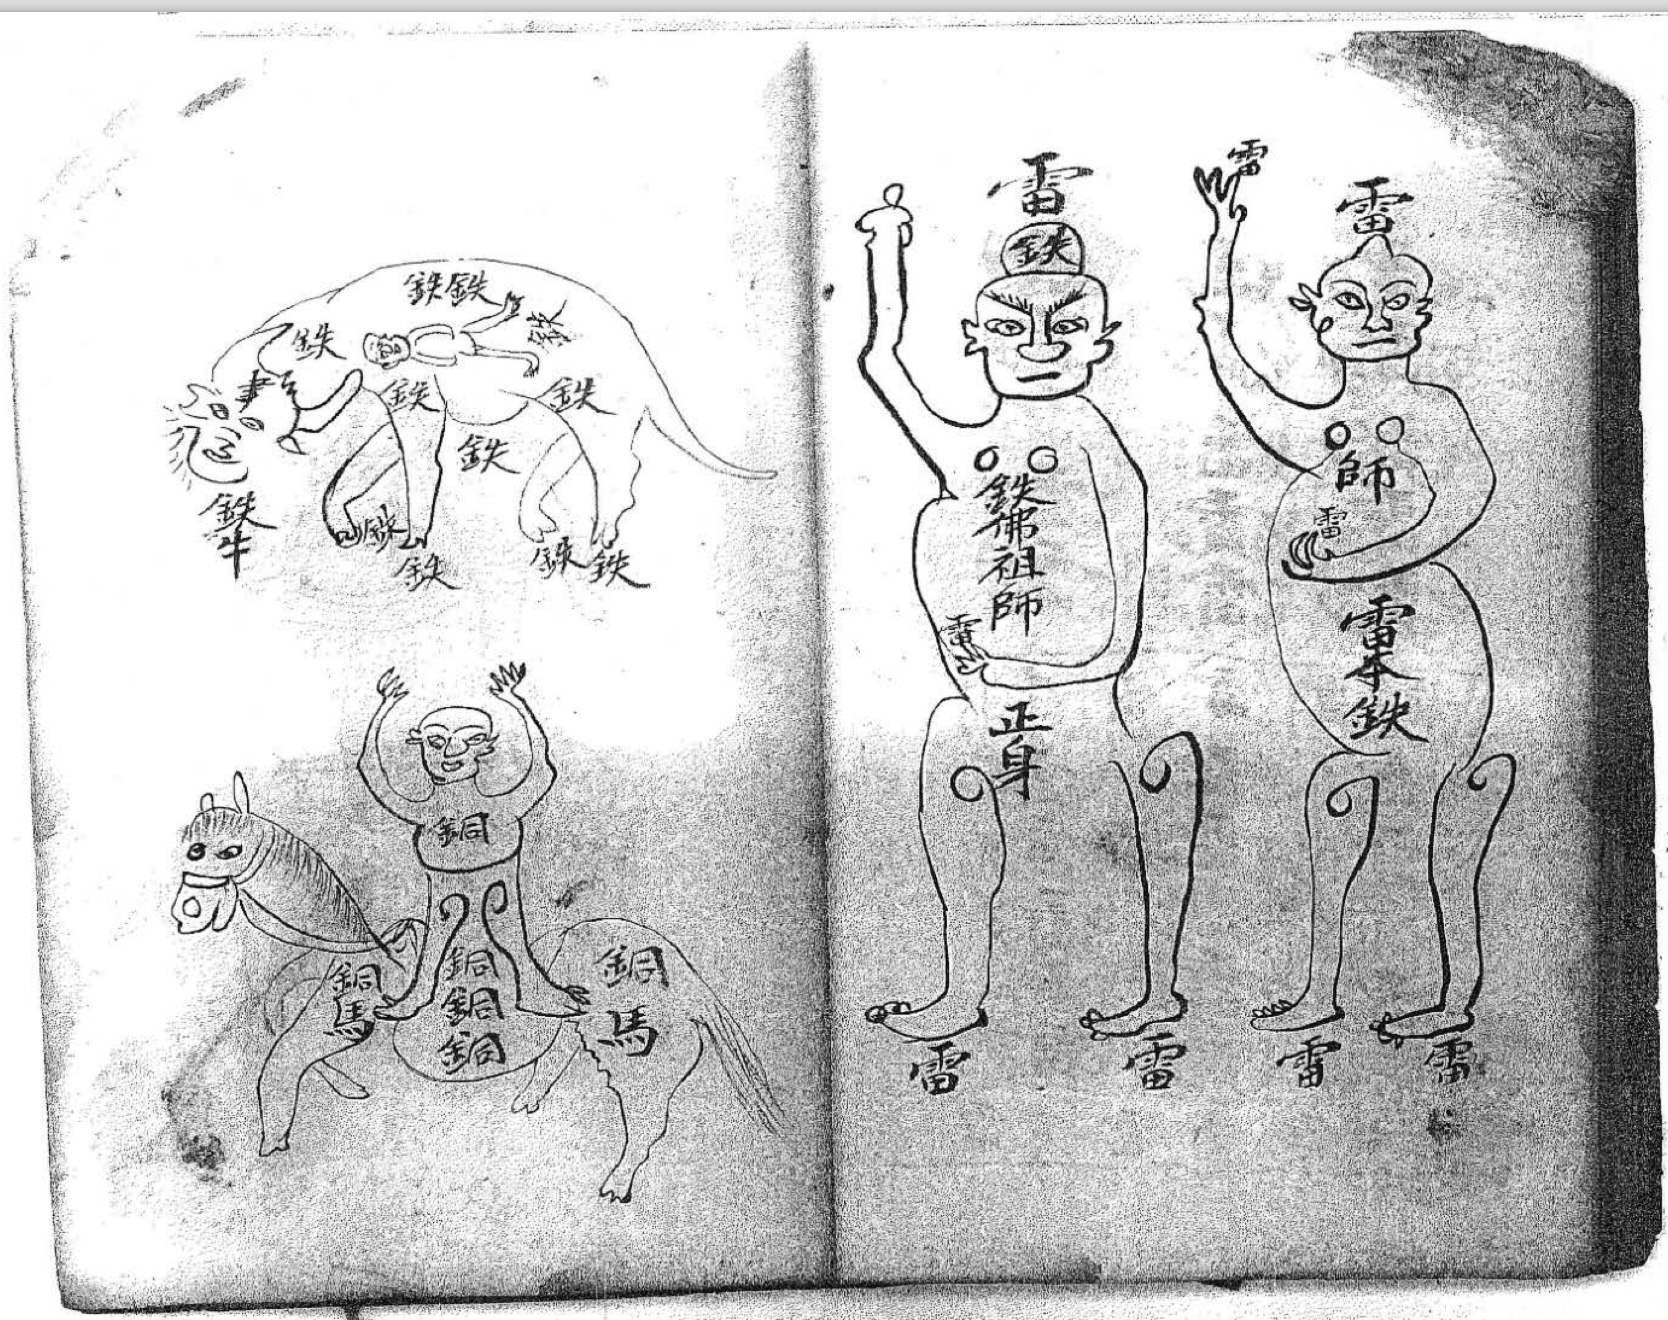 雷
雷
師
雷
雷本鉄
雷
雷
雷
鉄
鉄佛祖師
雷
正身
雷
雷
鉄鉄
鉄
鉄
鉄
鉄
鉄
鉄牛
鉄
鉄
鉄
鉄
銅
銅馬
銅銅銅
銅馬